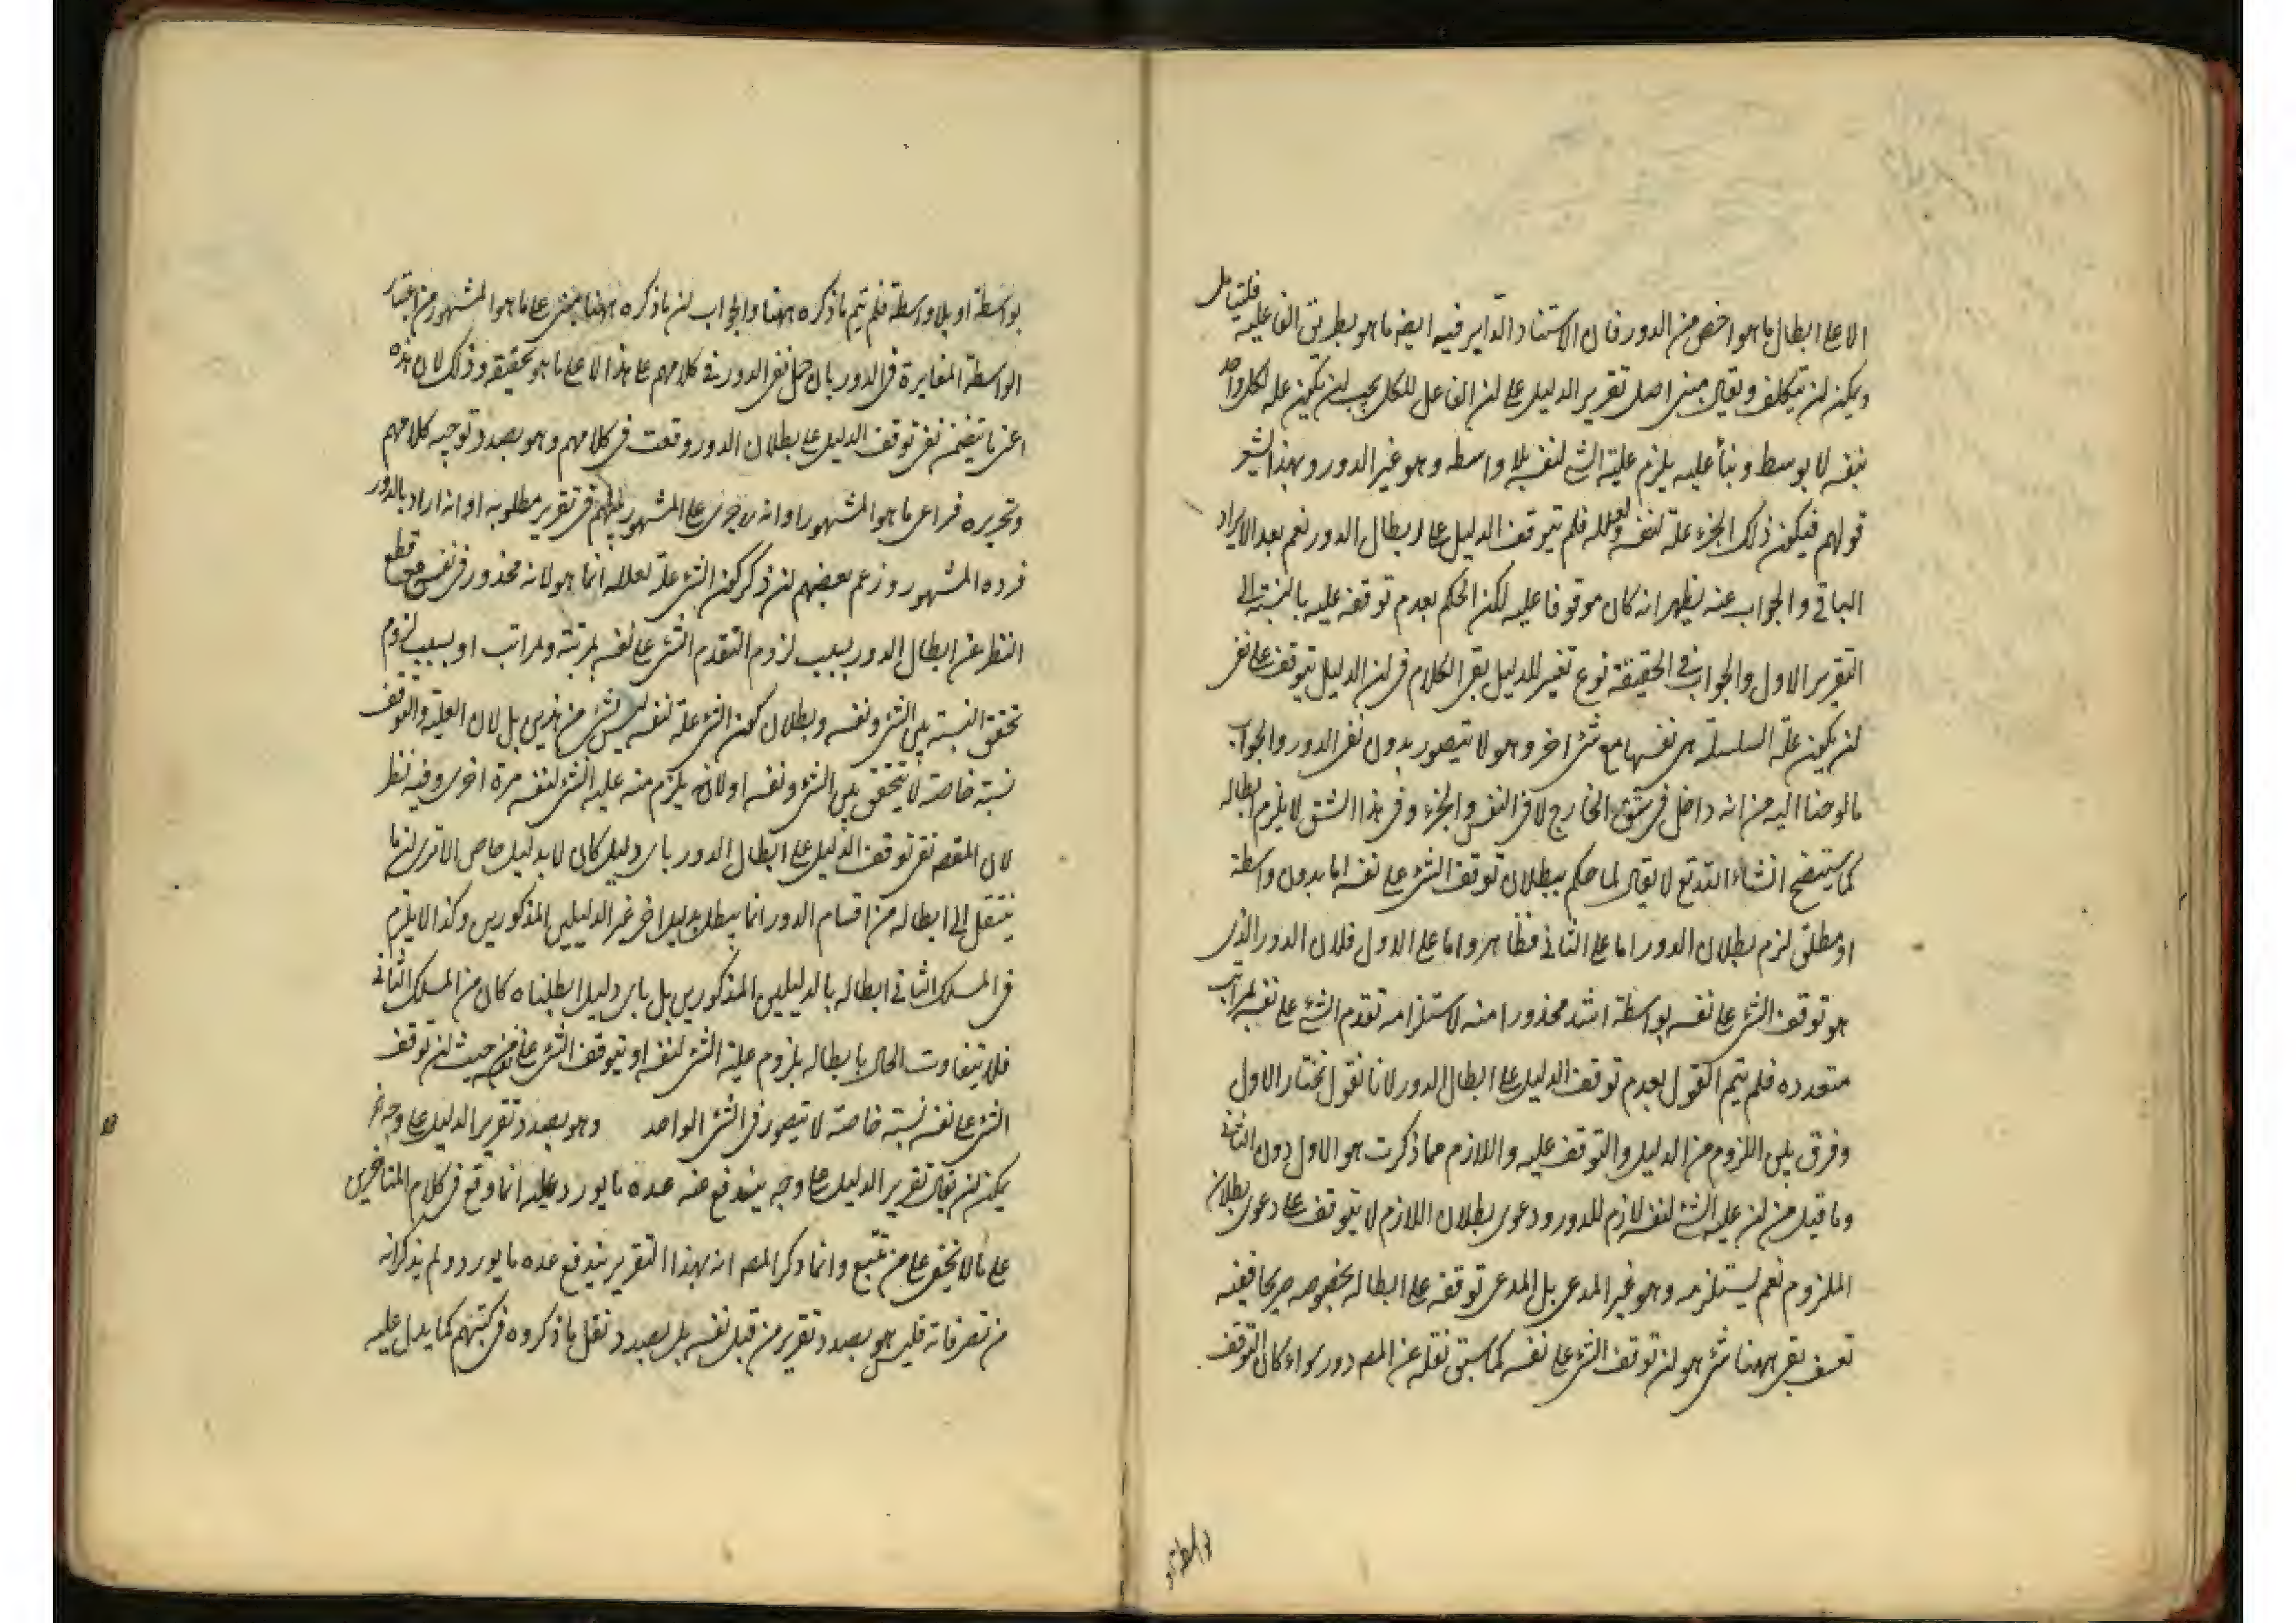 الا على ابطال ما هو اخص من الدور فان الاستناد الدائر فيه ايضا ما هو بطريق الفاعليه فليتامل
ويمكن ان يتكلف ويقال مبنى اصل تقرير الدليل على ان الفاعل للكل يجب ان يكون علة لكل واحد
بنفسه لا بوسط وبناء عليه يلزم علية الشئ لنفسه بلا واسطه وهو غير الدور وبهذا يشعر
قولهم فيكون ذلك الجزء علة لنفسه ولعلله فلم يتوقف الدليل على ابطال الدور نعم بعد الايراد
الباقي والجواب عنه يظهر انه كان موقوفا عليه لكن الحكم بعدم توقفه عليه بالنسبة الى
التقرير الاول والجواب في الحقيقة نوع تغيير للدليل بقى الكلام فى ان الدليل يتوقف على نفى
ان يكون علة السلسلة هى نفسها مع شئ اخر وهو لا يتصور بدون نفى الدور والجواب
ما لوحنا اليه من انه داخل فى شق الخارج لا فى النفس والجزء وفى هذا الشق لا يلزم ابطاله
كما سيتضح انشاء الله تع لا يقال لما حكم ببطلان توقف الشئ على نفسه اما بدون واسطة
او مطلق لزم بطلان الدور اما على الثانى فظاهر واما على الاول فلان الدور الذى
هو توقف الشئ على نفسه بواسطة اشد محذورا منه لاستلزامه تقدم الشئ على نفسه بمراتب
متعدده فلم يتم القول بعدم توقف الدليل على ابطال الدور لانا نقول نختار الاول
وفرق بين اللزوم من الدليل والتوقف عليه واللازم مما ذكرت هو الاول دون الثانى
وما قيل من ان علية الشئ لنفسه لازم للدور ودعوى بطلان اللازم لا يتوقف على دعوى بطلان
الملزوم نعم يستلزمه وهو غير المدعى بل المدعى توقفه على ابطاله بخصوصه صريحا ففيه
تعسف بقى ههنا شئ هو ان توقف الشئ على نفسه كما سبق نقله عن المصـ دور سواء كان التوقف
بواسطة
بواسطة او بلا واسطة فلم يتم ما ذكره ههنا والجواب ان ما ذكره ههنا مبنى على ما هو المشهور من اعتبار
الواسطة المغايرة فى الدور بان حمل نفى الدور فى كلامهم على هذا لا على ما هو تحقيقه وذلك لان هذه
اعنى ما يتضمن نفى توقف الدليل على بطلان الدور وقعت فى كلامهم وهو بصدد توجيه كلامهم
وتحريره فراعى ما هو المشهور او انه جرى على المشهور بينهم فى تقرير مطلوبه او انه اراد بالدور
فرده المشهور وزعم بعضهم ان ذكر كون الشئ علة لعلله انما هو لانه محذور فى نفسه مع قطع
النظر عن ابطال الدور بسبب لزوم التقدم الشئ على نفسه بمرتبة ومراتب او بسبب لزوم
تحقق النسبة بين الشئ ونفسه وبطلان كون الشئ علة لنفسه ليس لشئ من هذين بل لان العلية والتوقف
نسبة خاصة لا يتحقق بين الشئ ونفسه او لانه يلزم منه علية الشئ لنفسه مرة اخرى وفيه نظر
لان المقصـ نفى توقف الدليل على ابطال الدور باى دليل كان لا بدليل خاص الا ترى ان ما
ينتقل الى ابطاله من اقسام الدور انما يبطل بدليل اخر غير الدليلين المذكورين وكذا لا يلزم
فى المسلك الثانى ابطاله بالدليلين المذكورين بل باى دليل ابطلناه كان من المسلك الثانى
فلا يتفاوت الحال بابطاله بلزوم علية الشئ لنفسه او بتوقف الشئ على نفسه من حيث ان توقف
الشئ على نفسه نسبة خاصة لا تتصور فى الشئ الواحد وهو بصدد تقرير الدليل على وجه اه
يمكن ان يقال تقرير الدليل على وجه يندفع عنه عده ما يورد عليه انما وقع فى كلام المتاخرين
على ما لا يخفى على من تتبع وانما ذكر المصـ انه بهذا التقرير يندفع عده ما يورد ولم يذكر انه
من تصرفاته فليس هو بصدد تقرير من قبل نفسه بل بصدد نقل ما ذكروه فى كتبهم كما يدل عليه